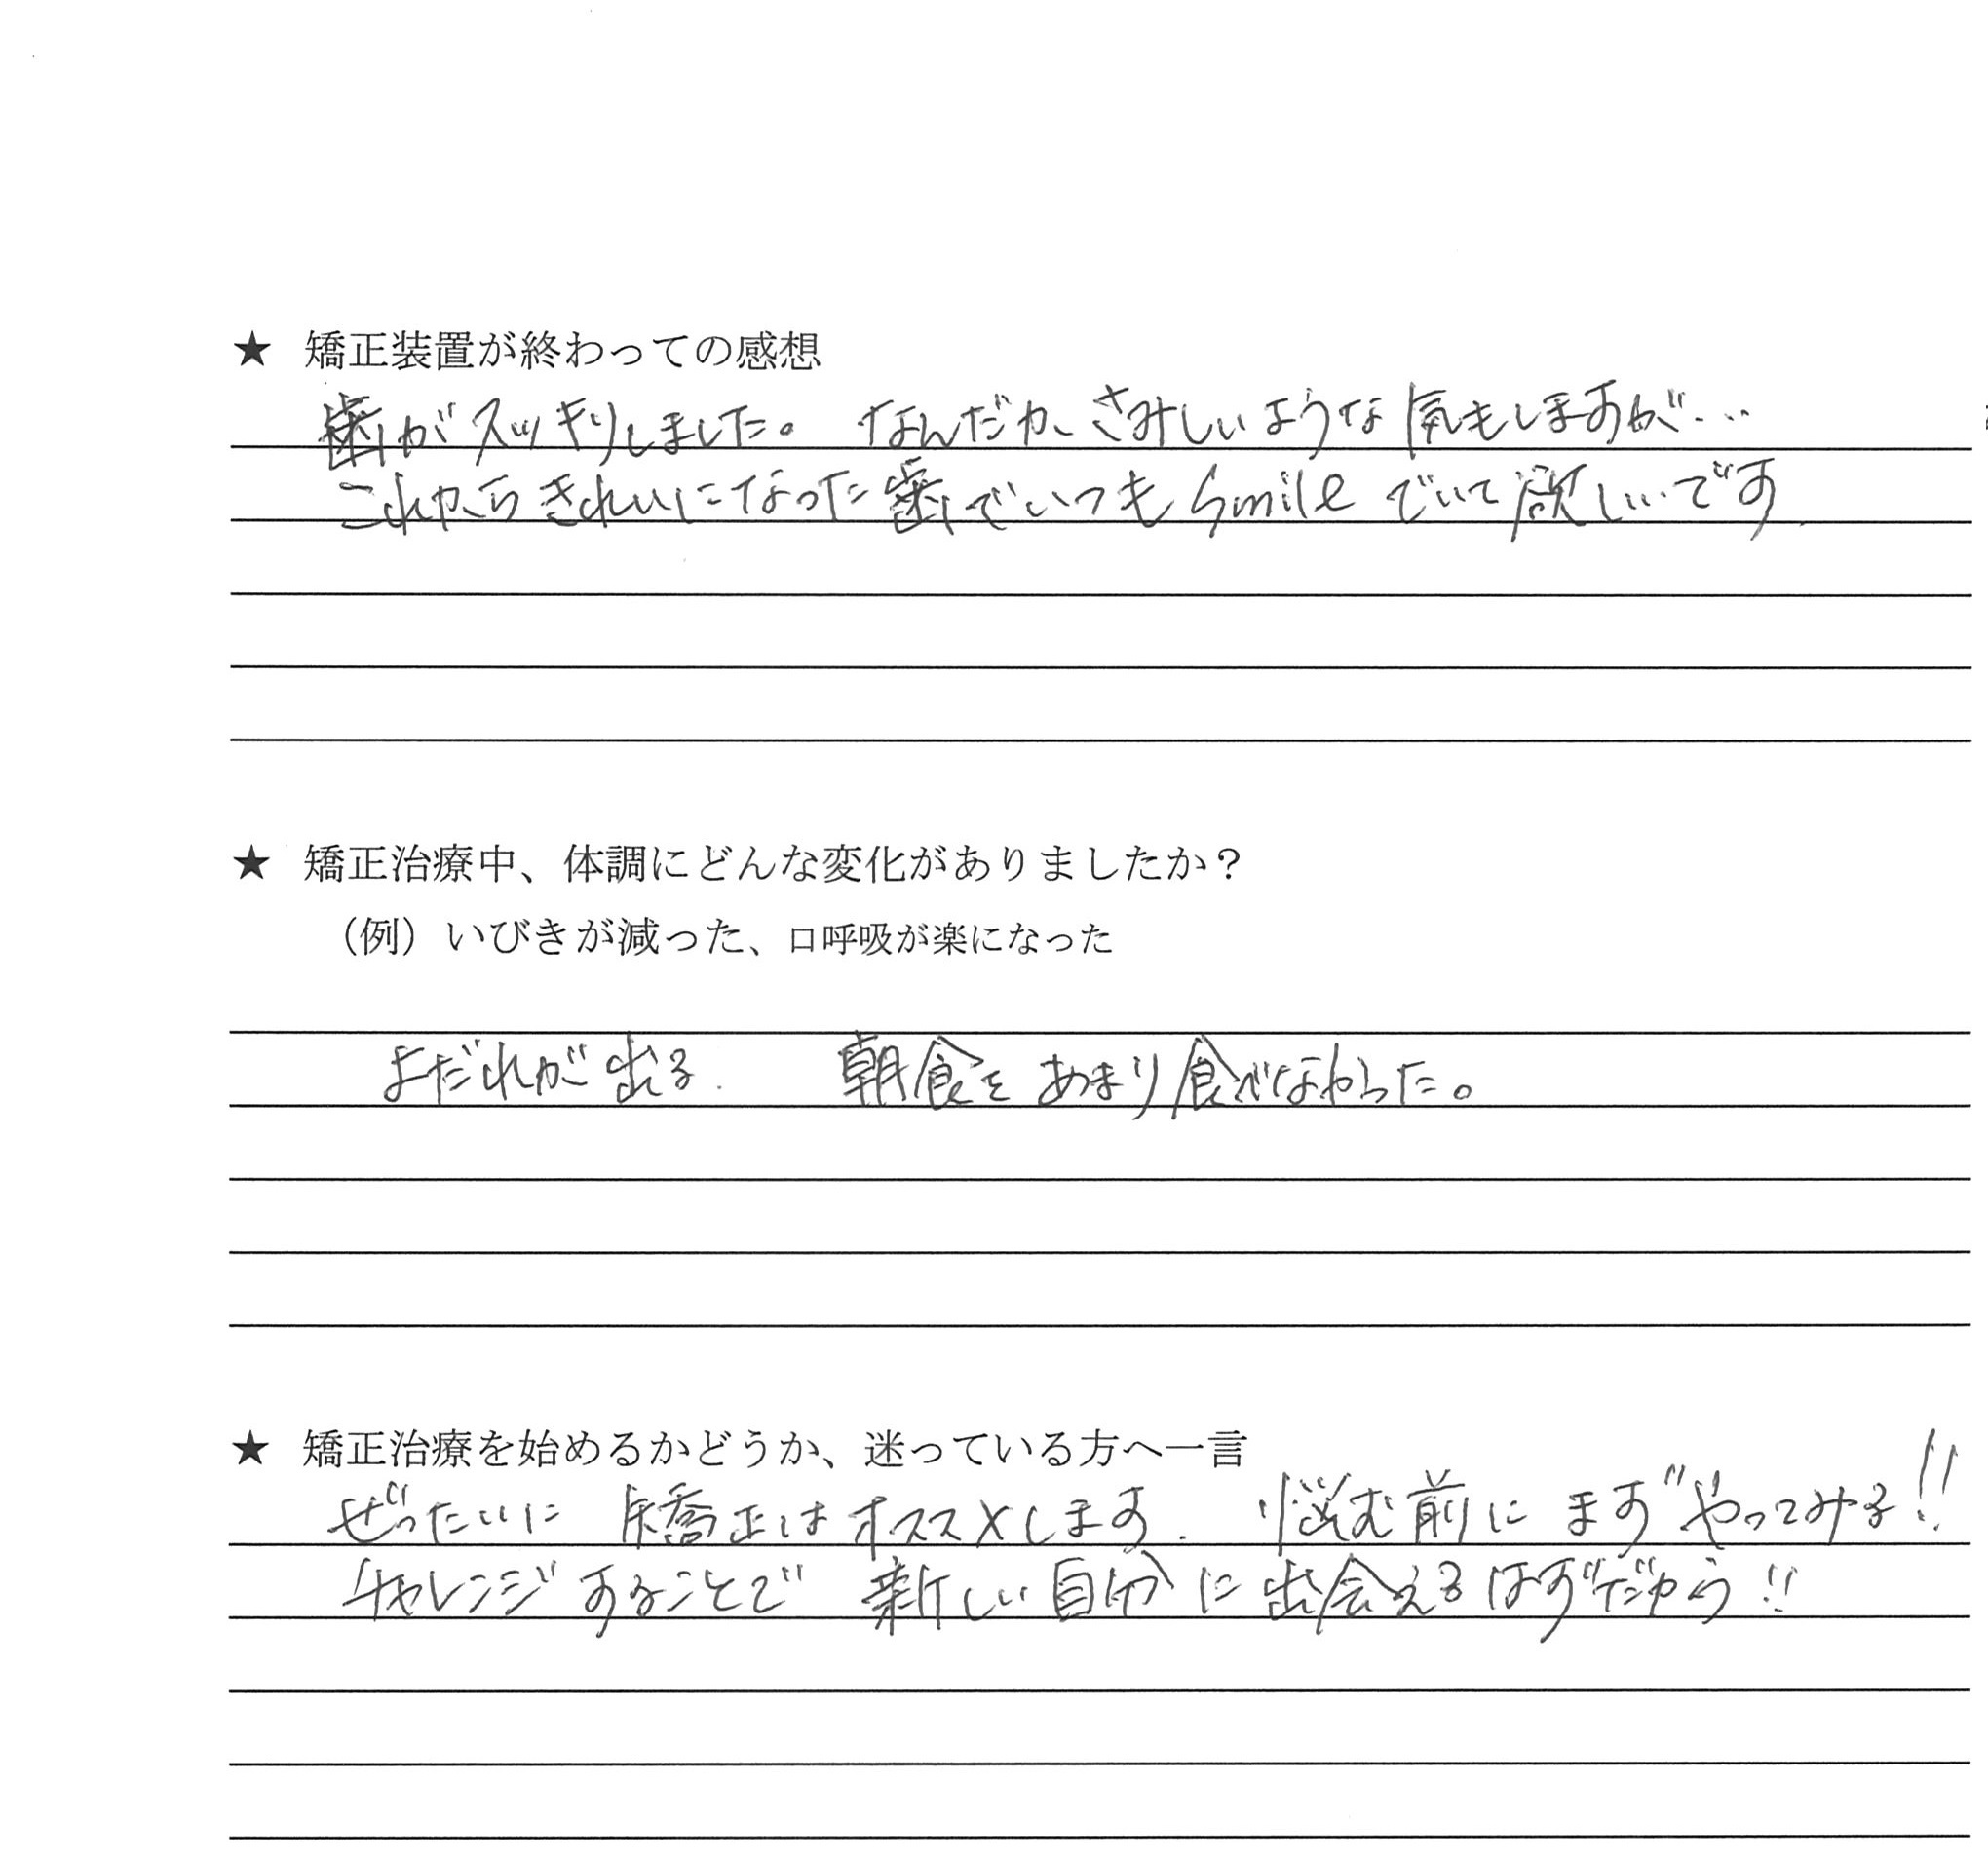 ★ 矯正装置が終わっての感想
歯がスッキリしました。なんだか、さみしいような気もしますが…
これからきれいになった歯でいつもSmileでいて欲しいです
★ 矯正治療中、体調にどんな変化がありましたか？
（例）いびきが減った、口呼吸が楽になった
よだれが出る. 朝食をあまり食べなかった。
★ 矯正治療を始めるかどうか、迷っている方へ一言
ぜったいに 矯正はオススメします. 悩む前に まず やってみる!!
チャレンジすることで 新しい自分に出会えるはずだから!!